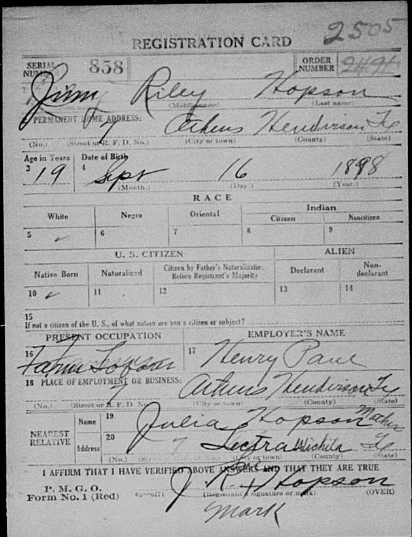 2505
REGISTRATION CARD
SERIAL NUMBER 858 ORDER NUMBER
Jimy Riley Hopson
(Middle name) (Last name)
PERMANENT HOME ADDRESS:
7 Athens Henderson Tx
(No.) (Street or R. F. D. No.) (City or town) (County) (State)
Age in Years Date of Birth
3 19 4 Sept 16 1898
(Month.) (Day.) (Year.)
RACE
White Negro Oriental Indian
Citizen Noncitizen
5 ✓ 6 7 8 9
U. S. CITIZEN ALIEN
Native Born Naturalized Citizen by Father's Naturalization Before Registrant's Majority Declarant Non-declarant
10 ✓ 11 12 13 14
15
If not a citizen of the U. S., of what nation are you a citizen or subject?
PRESENT OCCUPATION EMPLOYER'S NAME
16 Farm 17 Henry
18 PLACE OF EMPLOYMENT OR BUSINESS:
Athens Henderson Tx
(No.) (Street or R. F. D. No.) (City or town) (County) (State)
NEAREST RELATIVE
Name 19 Julia Hopson Mother
Address 20 7 Lectra Wichita Tx
(No.) (State)
I AFFIRM THAT I HAVE VERIFIED ABOVE ANSWERS AND THAT THEY ARE TRUE
P. M. G. O.
Form No. 1 (Red) J. R. Hopson
(Registrant's signature or mark) (OVER)
Mark